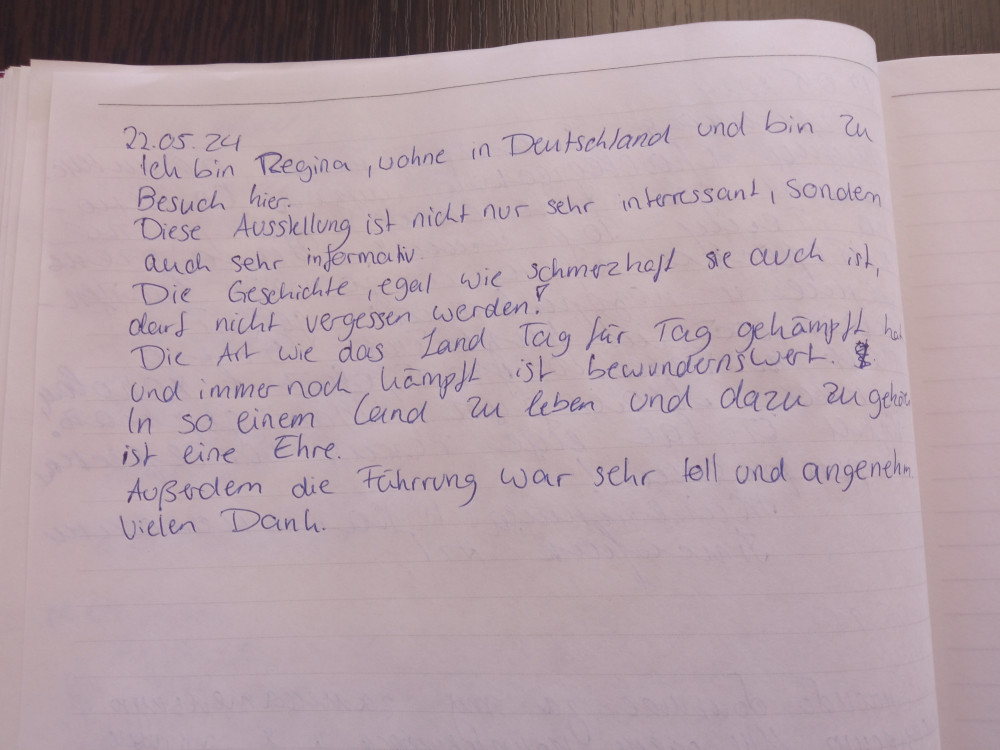 22.05.24
Ich bin Regina, wohne in Deutschland und bin zu
Besuch hier.
Diese Ausstellung ist nicht nur sehr interressant, sondern
auch sehr informativ.
Die Geschichte, egal wie schmerzhaft sie auch ist,
darf nicht vergessen werden!
Die Art wie das Land Tag für Tag gekämpft hat
und immer noch kämpft ist bewundernswert.
In so einem Land zu leben und dazu zu gehör
ist eine Ehre.
Außerdem die Führrung war sehr toll und angenehm.
Vielen Dank.